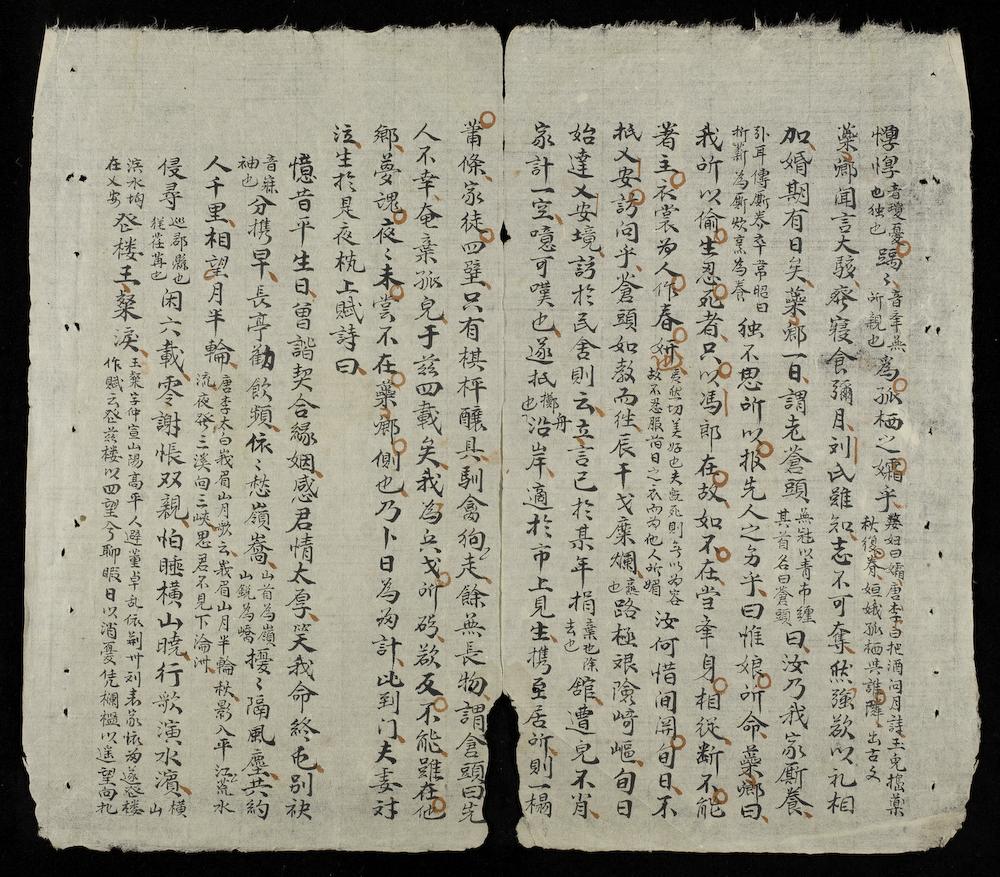 惸惸音瓊憂也独也踽〻音辜無所親也為孤栖之孀乎嫠妇曰孀唐李白把酒问月詩玉兔搗藥秋復春姮娥孤栖與誰隣出古文
蘂鄉闻言大駭癈寢食彌月刘氏雖知志不可奪然強欲以礼相
加婚期有日矣蘂鄉一日謂老蒼頭無冠以青布纏其首名曰蒼頭曰汝乃我家厮養
引耳傳厮養卒韋昭曰析薪為厮炊烹為養独不思所以报先人之劳乎曰惟娘所命蘂鄉曰
我所以偷生忍死者只以馮郎在故如不在當辜身相從断不能
著主衣裳為人作春妍倪然切美好也夫既死則無以為容故不忍服旧日之衣而为他人所媚汝何惜间関旬日不
抵乂安訪问乎蒼頭如教而徃辰干戈糜爛也路極艰険崎嶇旬日
始達乂安境訪於民舍則云立言已於某年捐棄也除去也舘遭兒不肖
家計一空噫可嘆也遂抵擲舟也沿岸適於市上見生携至居所則一榻
蕭條家徒四壁只有棋枰釀具馴禽狗走餘無長物謂倉頭曰先
人不幸奄棄孤兒于兹四載矣我為兵戈所碍欲反不能雖在他
鄉夢魂夜〻未嘗不在蘂鄉側也乃卜日為归計比到门夫妻対
泣生於是夜枕上賦詩曰
憶昔平生日曽諧契合縁姻感君情太厚笑我命終屯别袂
音寐袖也分携早長亭勸飲頻依〻愁嶺嶠山首為嶺山鋭為嶠擾〻隔風塵共約
人千里相望月半輪唐李太白峩眉山月歌云峩眉山月半輪秋影入平江羌水流夜發三溪向三峽思君不見下淪州
侵尋巡郡縣也從荏苒也闲六載零谢悵双親怕睡横山曉行歌演水濱横山
演水均在乂安登楼王粲淚王粲字仲宣山陽高平人避董卓乱依荆州刘表家依為遂登楼作賦云登兹楼以四望兮聊暇日以消憂凭欄檻以遥望向北